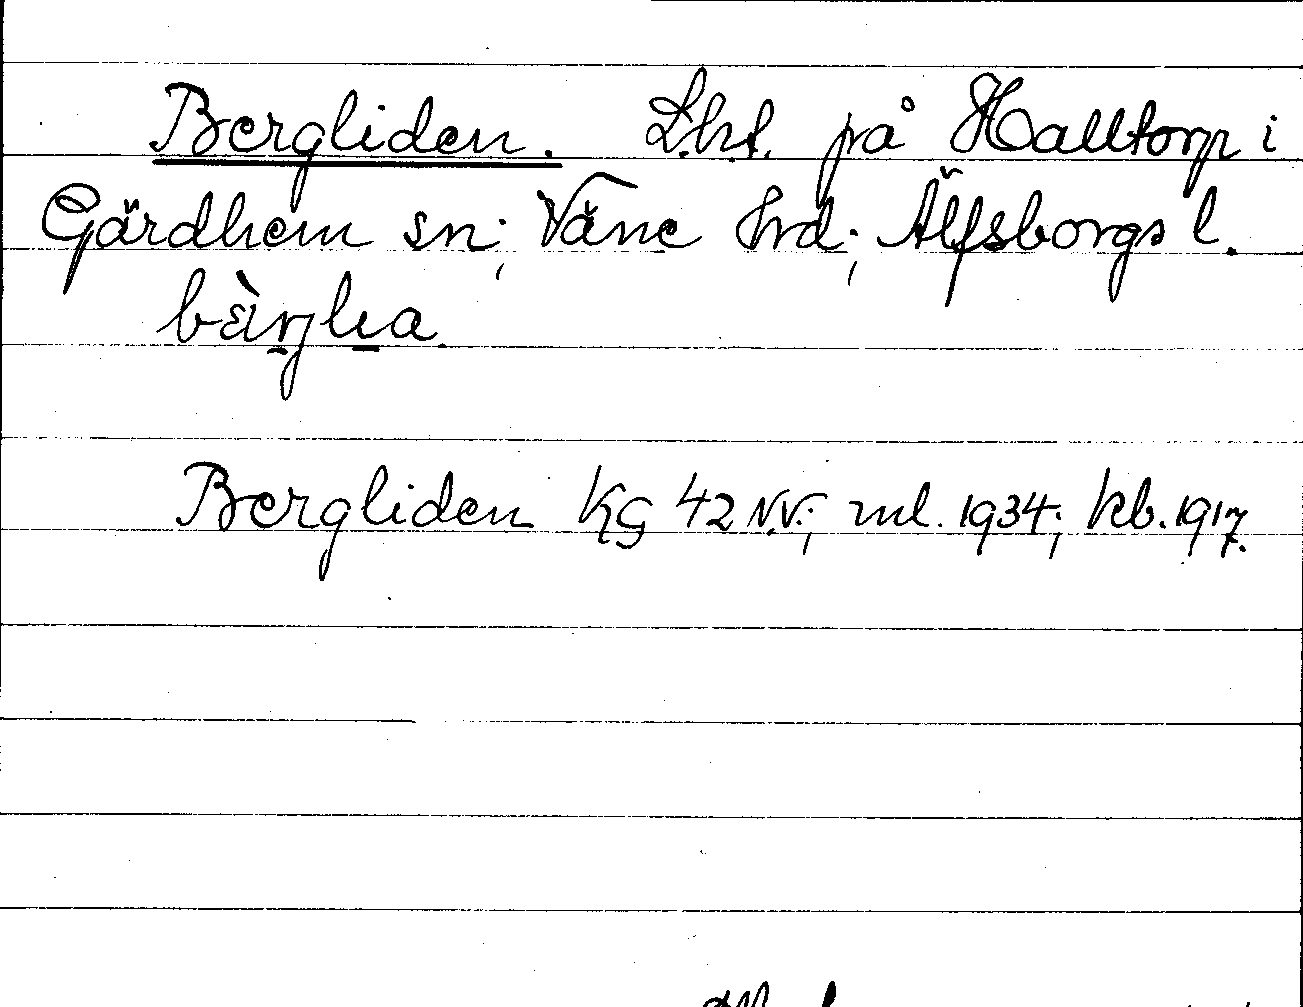 Bergliden. L.h.t. på Halltorp i
Gärdhem sn; Väne hrd; Älfsborgs l.
Bergliden KG 42 N.V.; ml. 1934; kb. 1917.